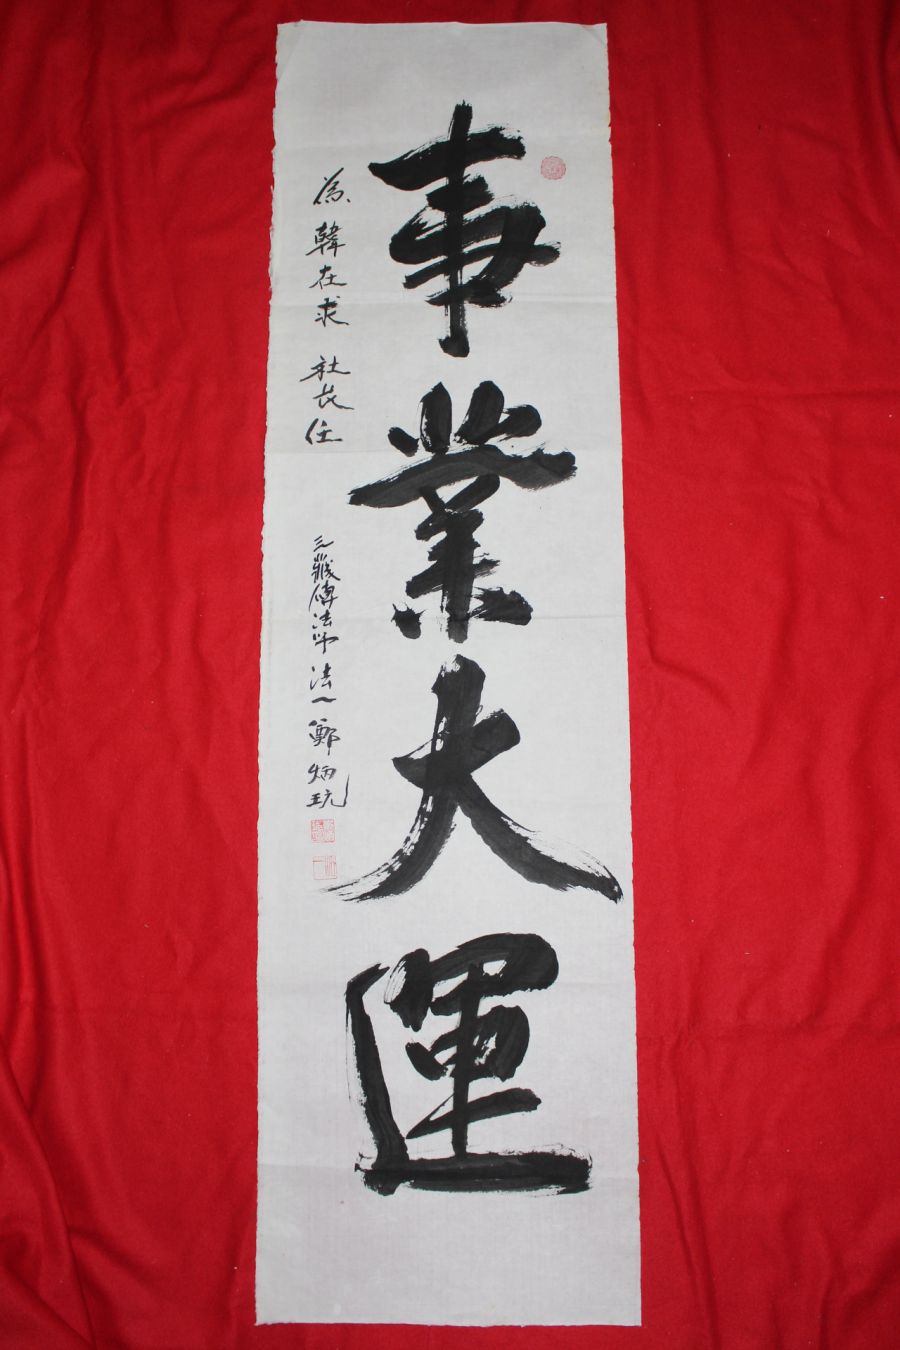 事業大運
為 韓在求 社長任
三藏傳法師 法一 鄭炳玩